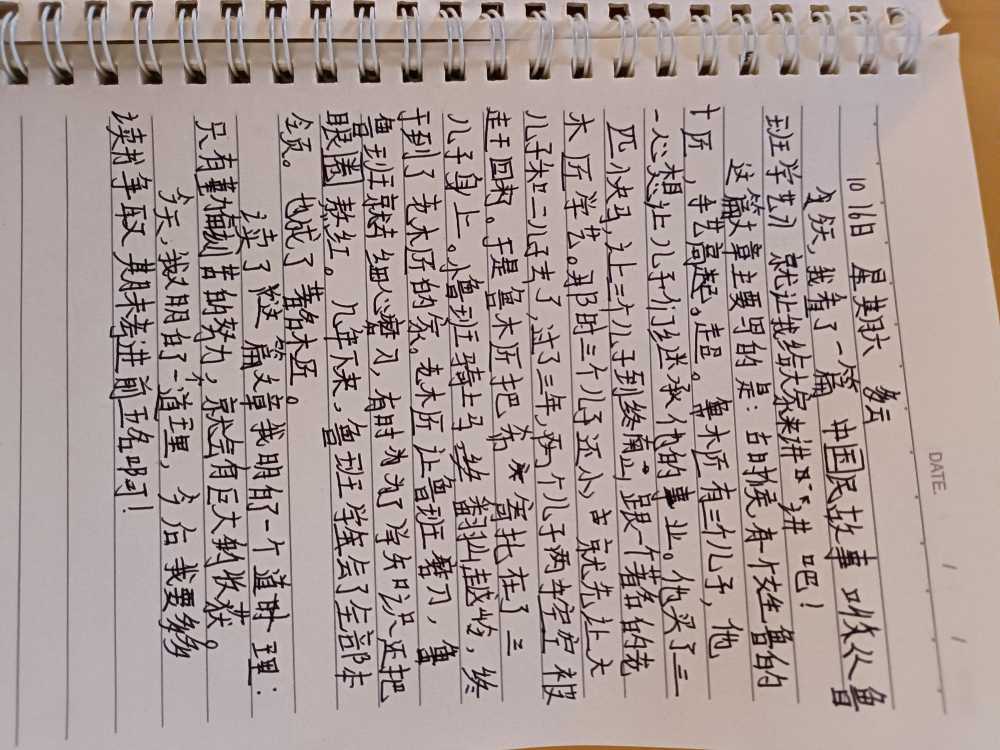 DATE / /
10 16日 星期六 多云
今天,我看了一篇 中国民故事 叫做从鲁
班学艺 就让我给大家来讲讲 吧!
这篇文章主要写的是:古时候有一个姓鲁的
木匠,手艺高起。超。 鲁木匠有三个儿子,他
一心想让儿子们继承他的事业。他买了三
匹小快马,让三个儿子到终南山,跟一个著名的老
木匠学艺。那时三个儿子还小 就先让大
儿子和二儿子去了,过了三年,两个儿子两手空空 被
赶了回来。于是鲁木匠把 希 寄托在了三
儿子身上。小鲁班骑上马 翻山越岭,终
于到了老木匠的家。老木匠让鲁班磨刀,鲁
鲁班就细心磨刀,有时为了学知识还把
眼圈熬红。几年下来,鲁班学会了全部本
领。 也成了著名木匠。
读了这篇文章我明白了一个道理:
只有勤奋刻苦的努力,就会有巨大的收获。
今天,我又明白了一道理,今后我要多多
读书争取期末考进前五名啊!